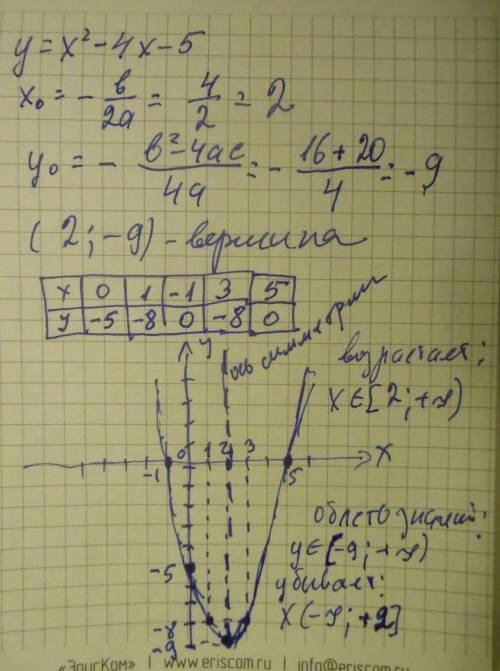 y = x² - 4x - 5
x₀ = - в/2a = 4/2 = 2
y₀ = - в² - 4ac/4a = - 16 + 20/4 = -9
(2; -9) - вершина
x 0 1 -1 3 5
y -5 -8 0 -8 0
y
ось симметрии
возрастает:
x ∈ [2; +∞)
-1 0 1 2 3 5 x
область значений:
y ∈ [-9; +∞)
-5
убывает:
x (-∞; +2]
-8
-9
«ЭрисКом» | www.eriscom.ru | info@eriscom.ru